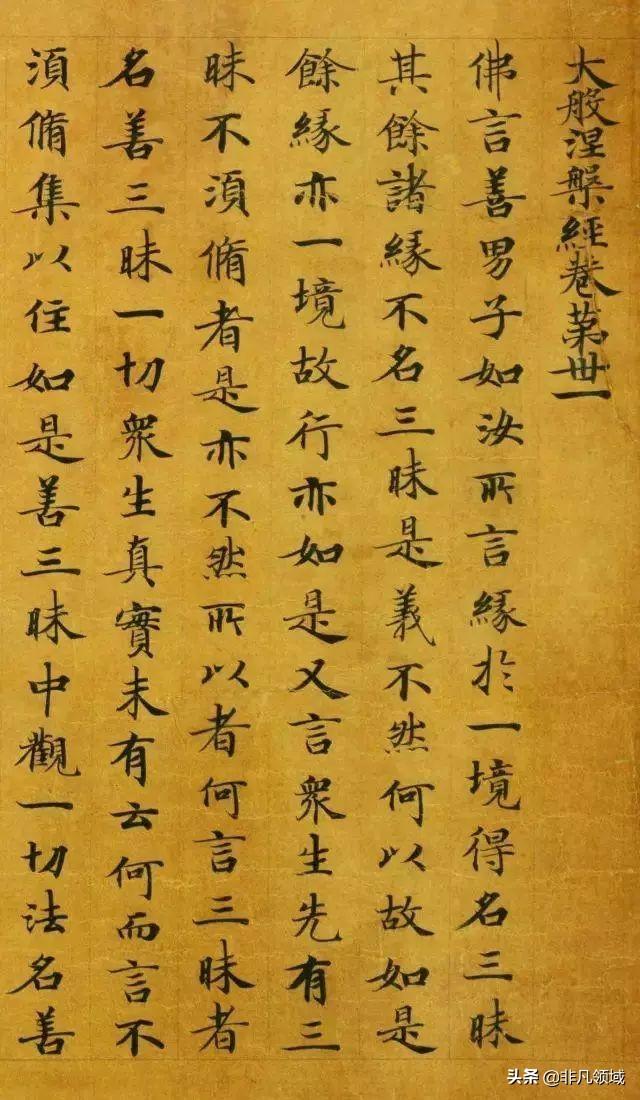 大般涅槃經卷第卅一
佛言善男子如汝所言緣於一境得名三昧
其餘諸緣不名三昧是義不然何以故如是
餘緣亦一境故行亦如是又言眾生先有三
昧不須脩者是亦不然所以者何言三昧者
名善三昧一切眾生真實未有云何而言不
須脩集以住如是善三昧中觀一切法名善
头条 @非凡领域